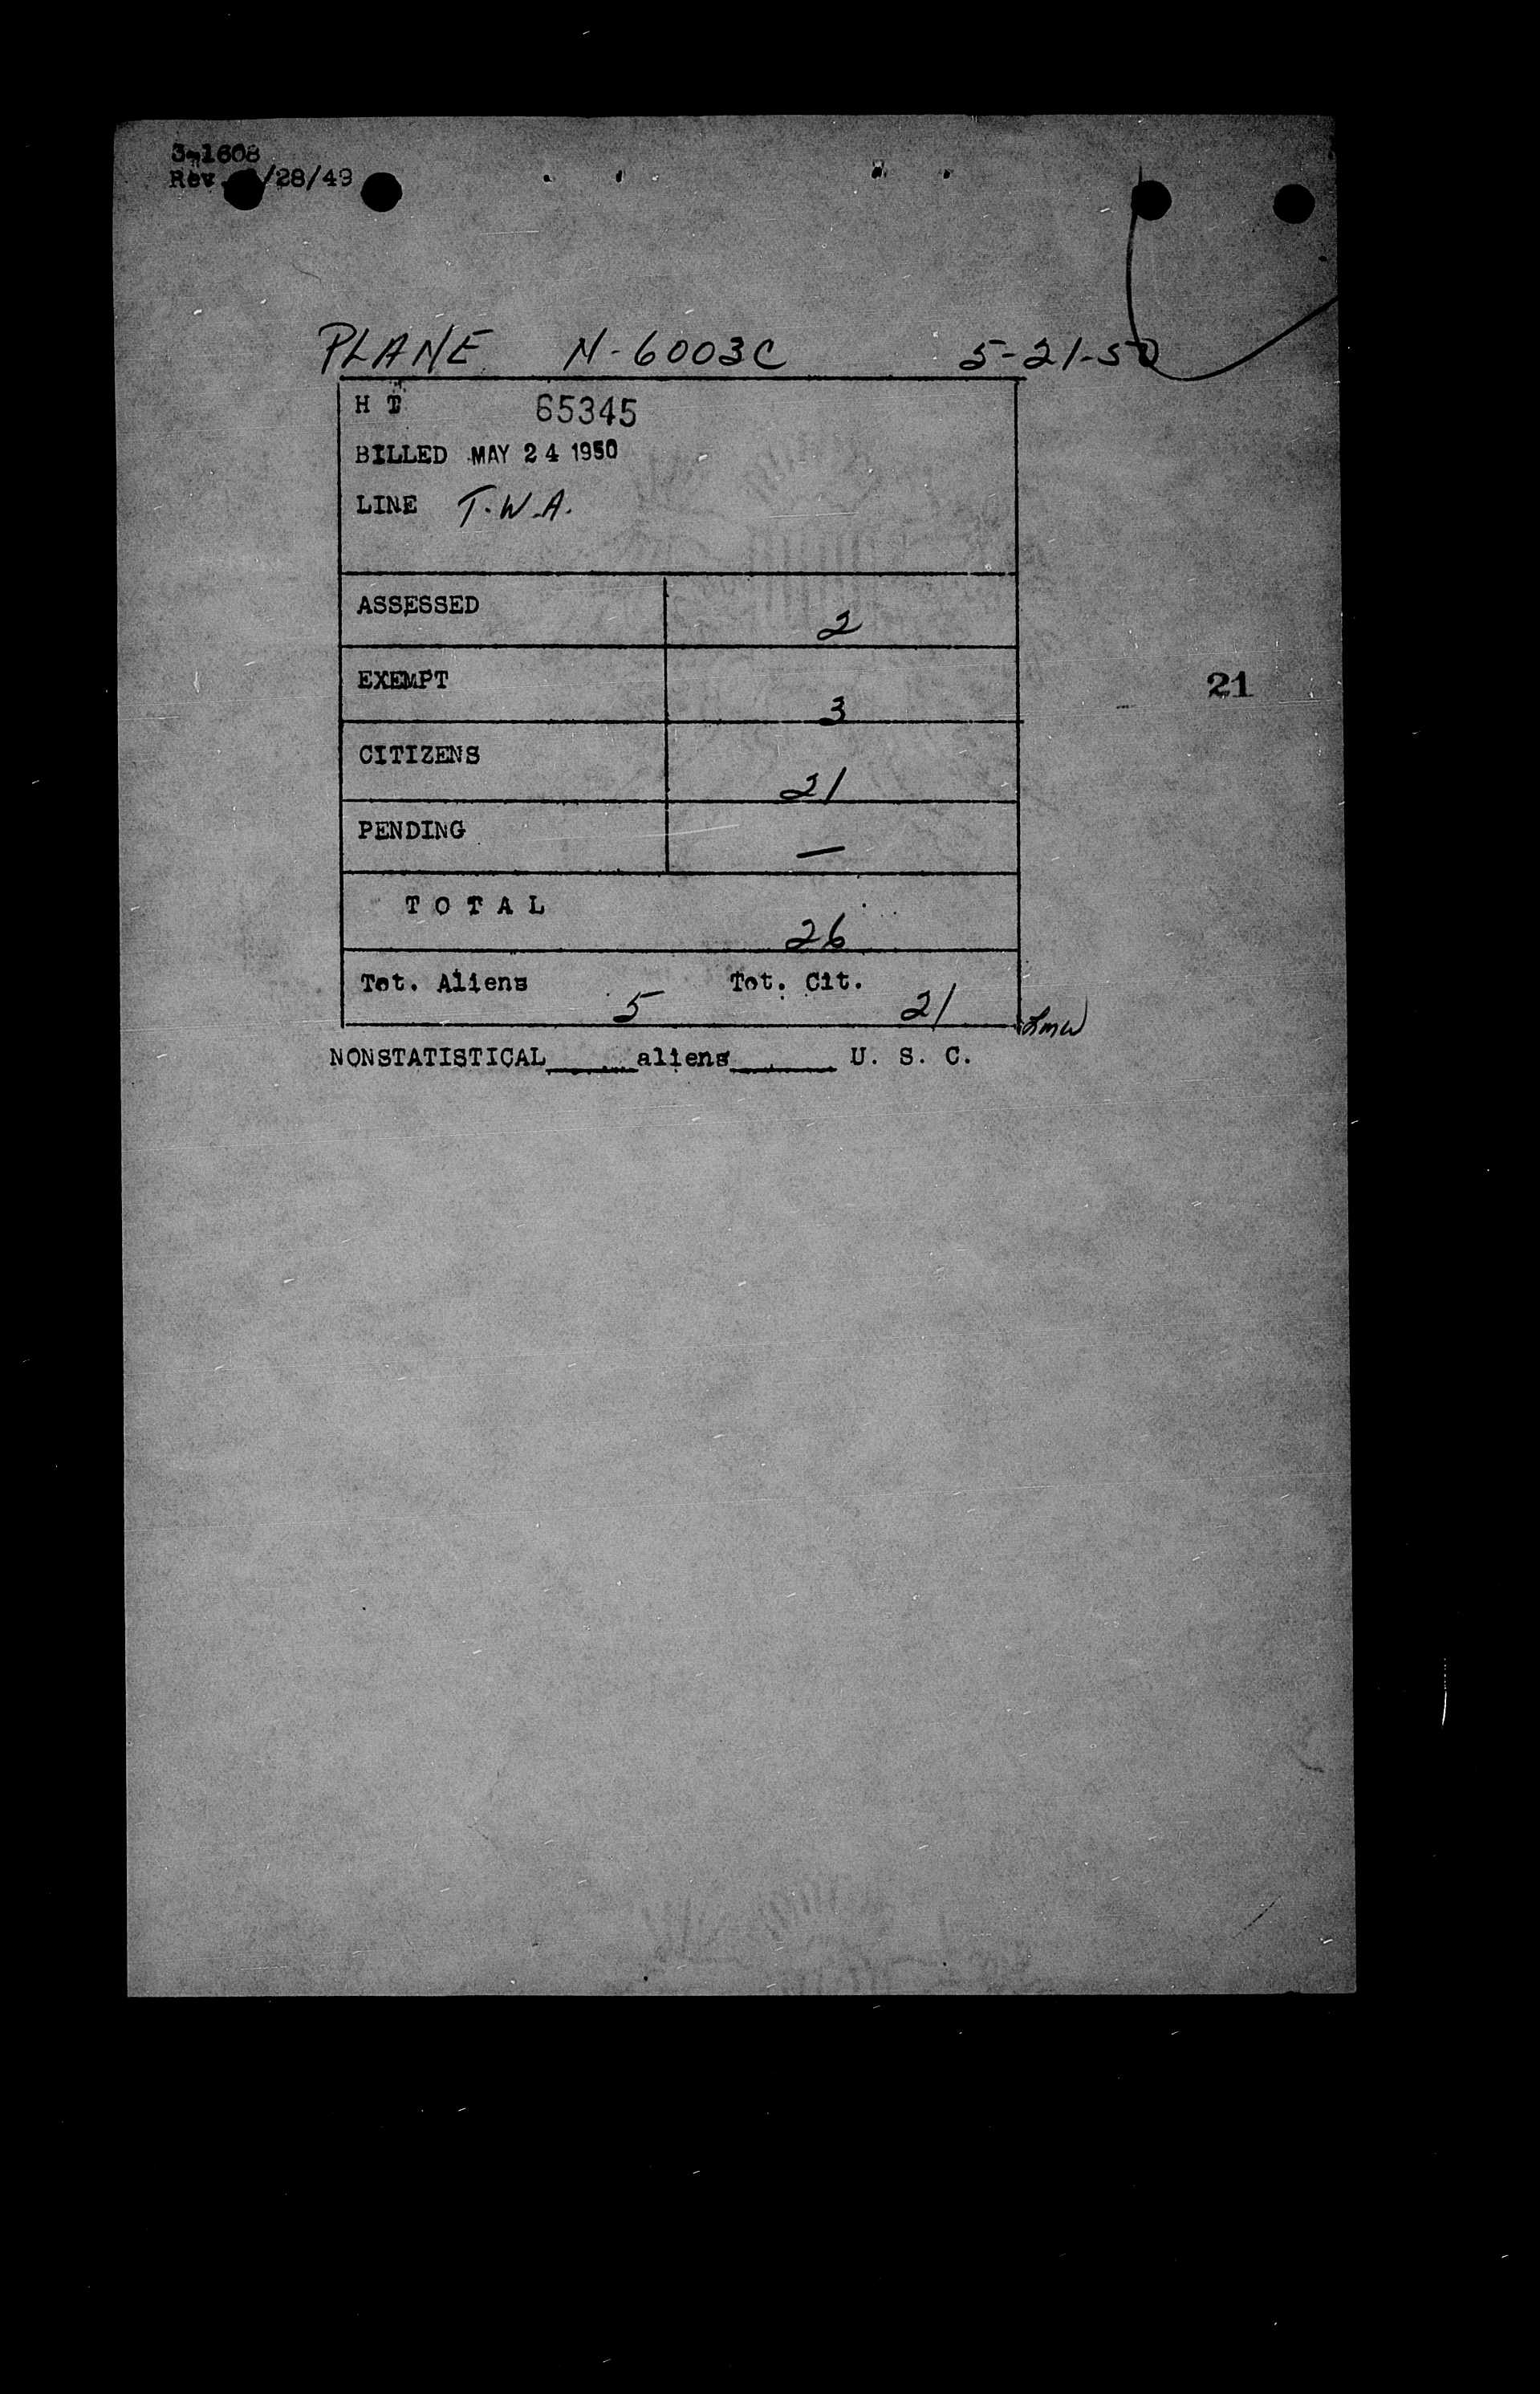 3-1608
Rev. /28/49
PLANE N-6003C 5-21-50
H T 65345
BILLED MAY 24 1950
LINE T.W.A.
ASSESSED 2
EXEMPT 3
21
CITIZENS 21
PENDING —
TOTAL 26
Tot. Aliens 5 Tot. Cit. 21
NONSTATISTICAL_____aliens_____ U. S. C.